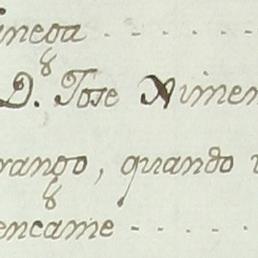 inega
D. Jose Ximen
rango, quando v
encame